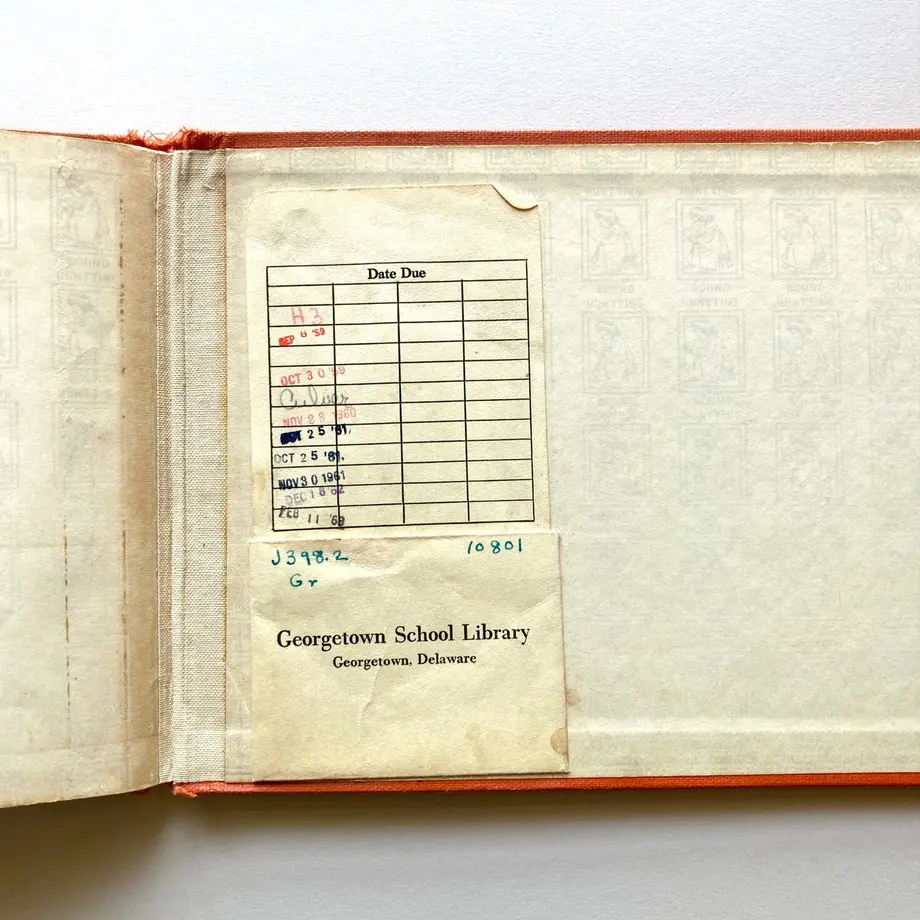 Date Due
H 3
SEP 8 '59
OCT 30 '59
NOV 28 1960
OCT 25 '61.
OCT 25 '61.
NOV 30 1961
DEC 18 '62
FEB 11 '63
J398.2 10801
Gr
Georgetown School Library
Georgetown, Delaware